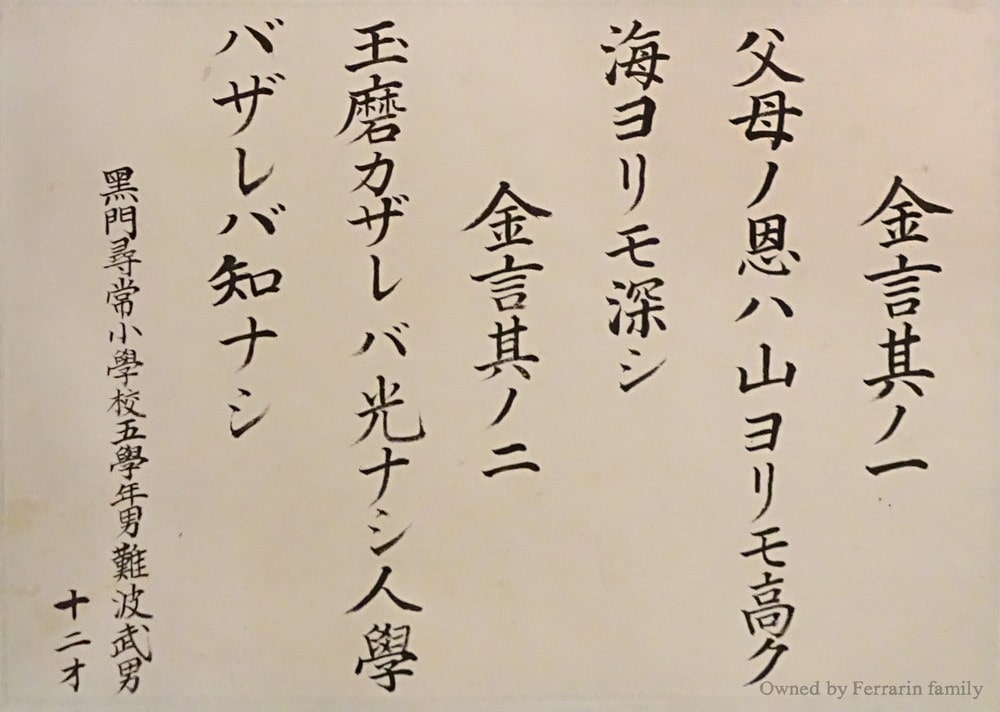 金言其ノ一
父母ノ恩ハ山ヨリモ高ク
海ヨリモ深シ
金言其ノ二
玉磨カザレバ光ナシ人學
バザレバ知ナシ
黑門尋常小學校五學年男難波武男
十二才
Owned by Ferrarin family